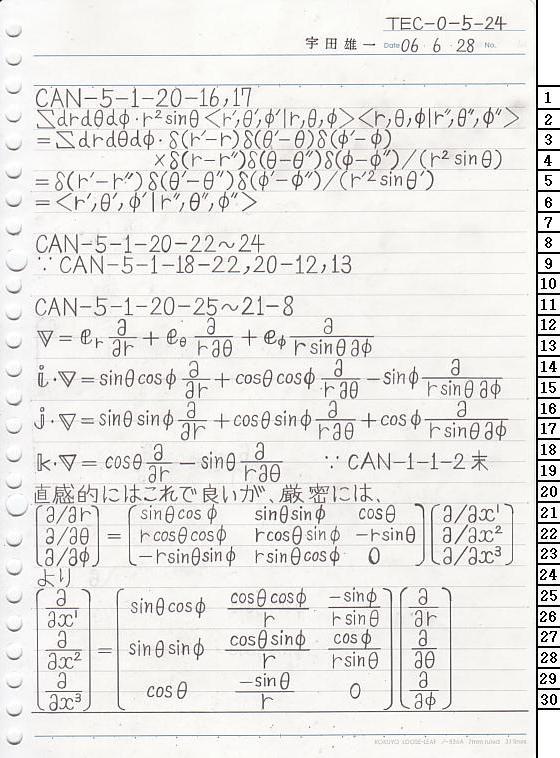 TEC-0-5-24
宇田雄一 Date 06・6・28 No.
CAN-5-1-20-16,17
∑drdθdφ・r²sinθ<r′,θ′,φ′|r,θ,φ><r,θ,φ|r″,θ″,φ″>
=∑drdθdφ・δ(r′-r)δ(θ′-θ)δ(φ′-φ)
×δ(r-r″)δ(θ-θ″)δ(φ-φ″)/(r²sinθ)
=δ(r′-r″)δ(θ′-θ″)δ(φ′-φ″)/(r′²sinθ′)
=<r′,θ′,φ′|r″,θ″,φ″>
CAN-5-1-20-22~24
∵CAN-5-1-18-22,20-12,13
CAN-5-1-20-25~21-8
∇=𝕖r ∂/∂r + 𝕖θ ∂/r∂θ + 𝕖φ ∂/r sinθ∂φ
𝕚・∇=sinθcosφ ∂/∂r + cosθcosφ ∂/r∂θ - sinφ ∂/r sinθ∂φ
𝕛・∇=sinθsinφ ∂/∂r + cosθsinφ ∂/r∂θ + cosφ ∂/r sinθ∂φ
𝕜・∇=cosθ ∂/∂r - sinθ ∂/r∂θ ∵CAN-1-1-2末
直感的にはこれで良いが、厳密には、
[∂/∂r] = [sinθcosφ sinθsinφ cosθ] [∂/∂x¹]
[∂/∂θ] [rcosθcosφ rcosθsinφ -rsinθ] [∂/∂x²]
[∂/∂φ] [-rsinθsinφ rsinθcosφ 0] [∂/∂x³]
より
[∂/∂x¹] [sinθcosφ cosθcosφ/r -sinφ/rsinθ] [∂/∂r]
[∂/∂x²] = [sinθsinφ cosθsinφ/r cosφ/rsinθ] [∂/∂θ]
[∂/∂x³] [cosθ -sinθ/r 0] [∂/∂φ]
KOKUYO LOOSE-LEAF ノ-836A 7mm ruled 31 lines
1
2
3
4
5
6
7
8
9
10
11
12
13
14
15
16
17
18
19
20
21
22
23
24
25
26
27
28
29
30